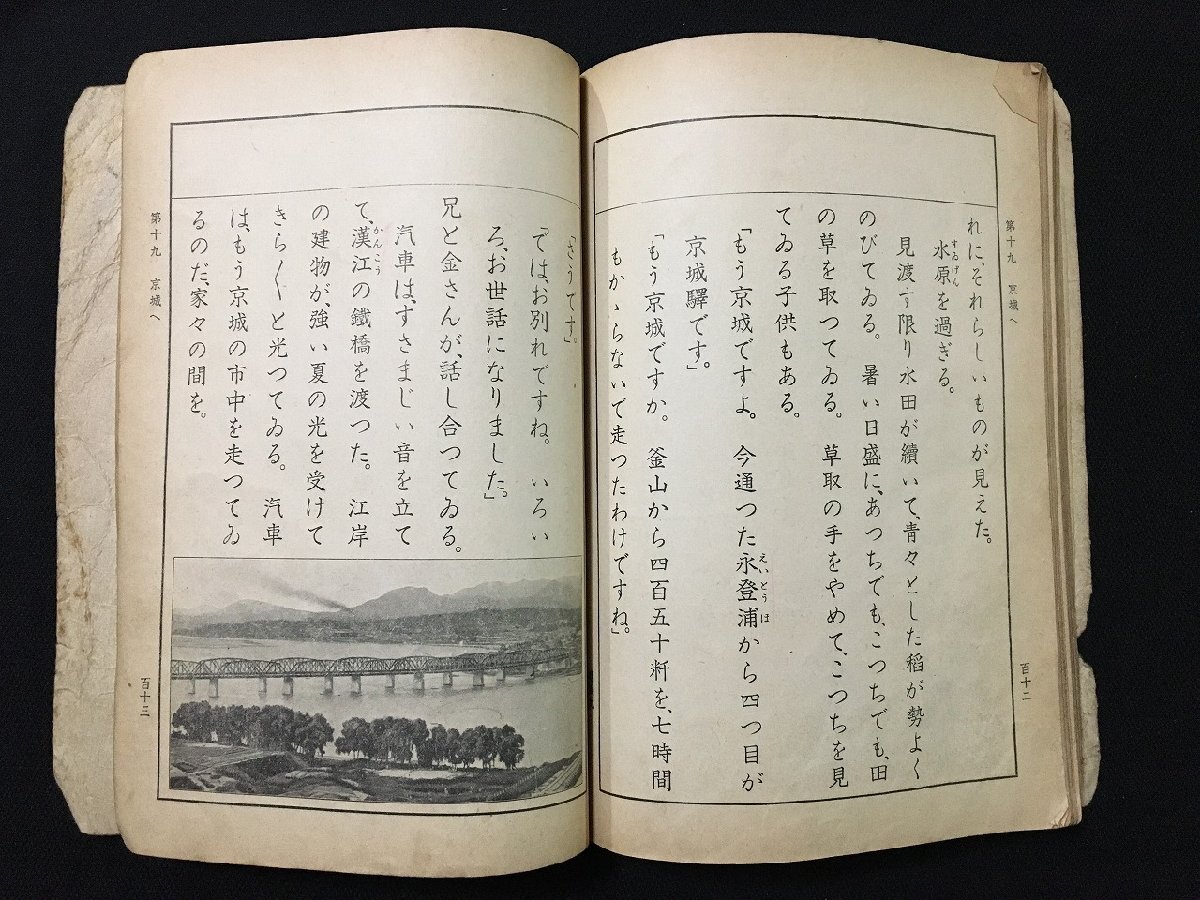 第十九 京城へ
百十二
れに、それらしいものが見えた。
水原を過ぎる。
すゐげん
見渡す限り水田が續いて、青々とした稻が勢よく
のびてゐる。 暑い日盛に、あつちでも、こつちでも、田
の草を取つてゐる。 草取の手をやめて、こつちを見
てゐる子供もある。
「もう京城ですよ。 今通つた永登浦から四つ目が
えいとうほ
京城驛です。」
「もう京城ですか。 釜山から四百五十粁を、七時間
もかゝらないで走つたわけですね。」
「さうです。」
「では、お別れですね。 いろい
ろ、お世話になりました。」
兄と金さんが、話し合つてゐる。
汽車は、すさまじい音を立て
て、漢江の鐵橋を渡つた。 江岸
かんこう
の建物が、強い夏の光を受けて
きら〳〵と光つてゐる。 汽車
は、もう京城の市中を走つてゐ
るのだ、家々の間を。
第十九 京城へ
百十三